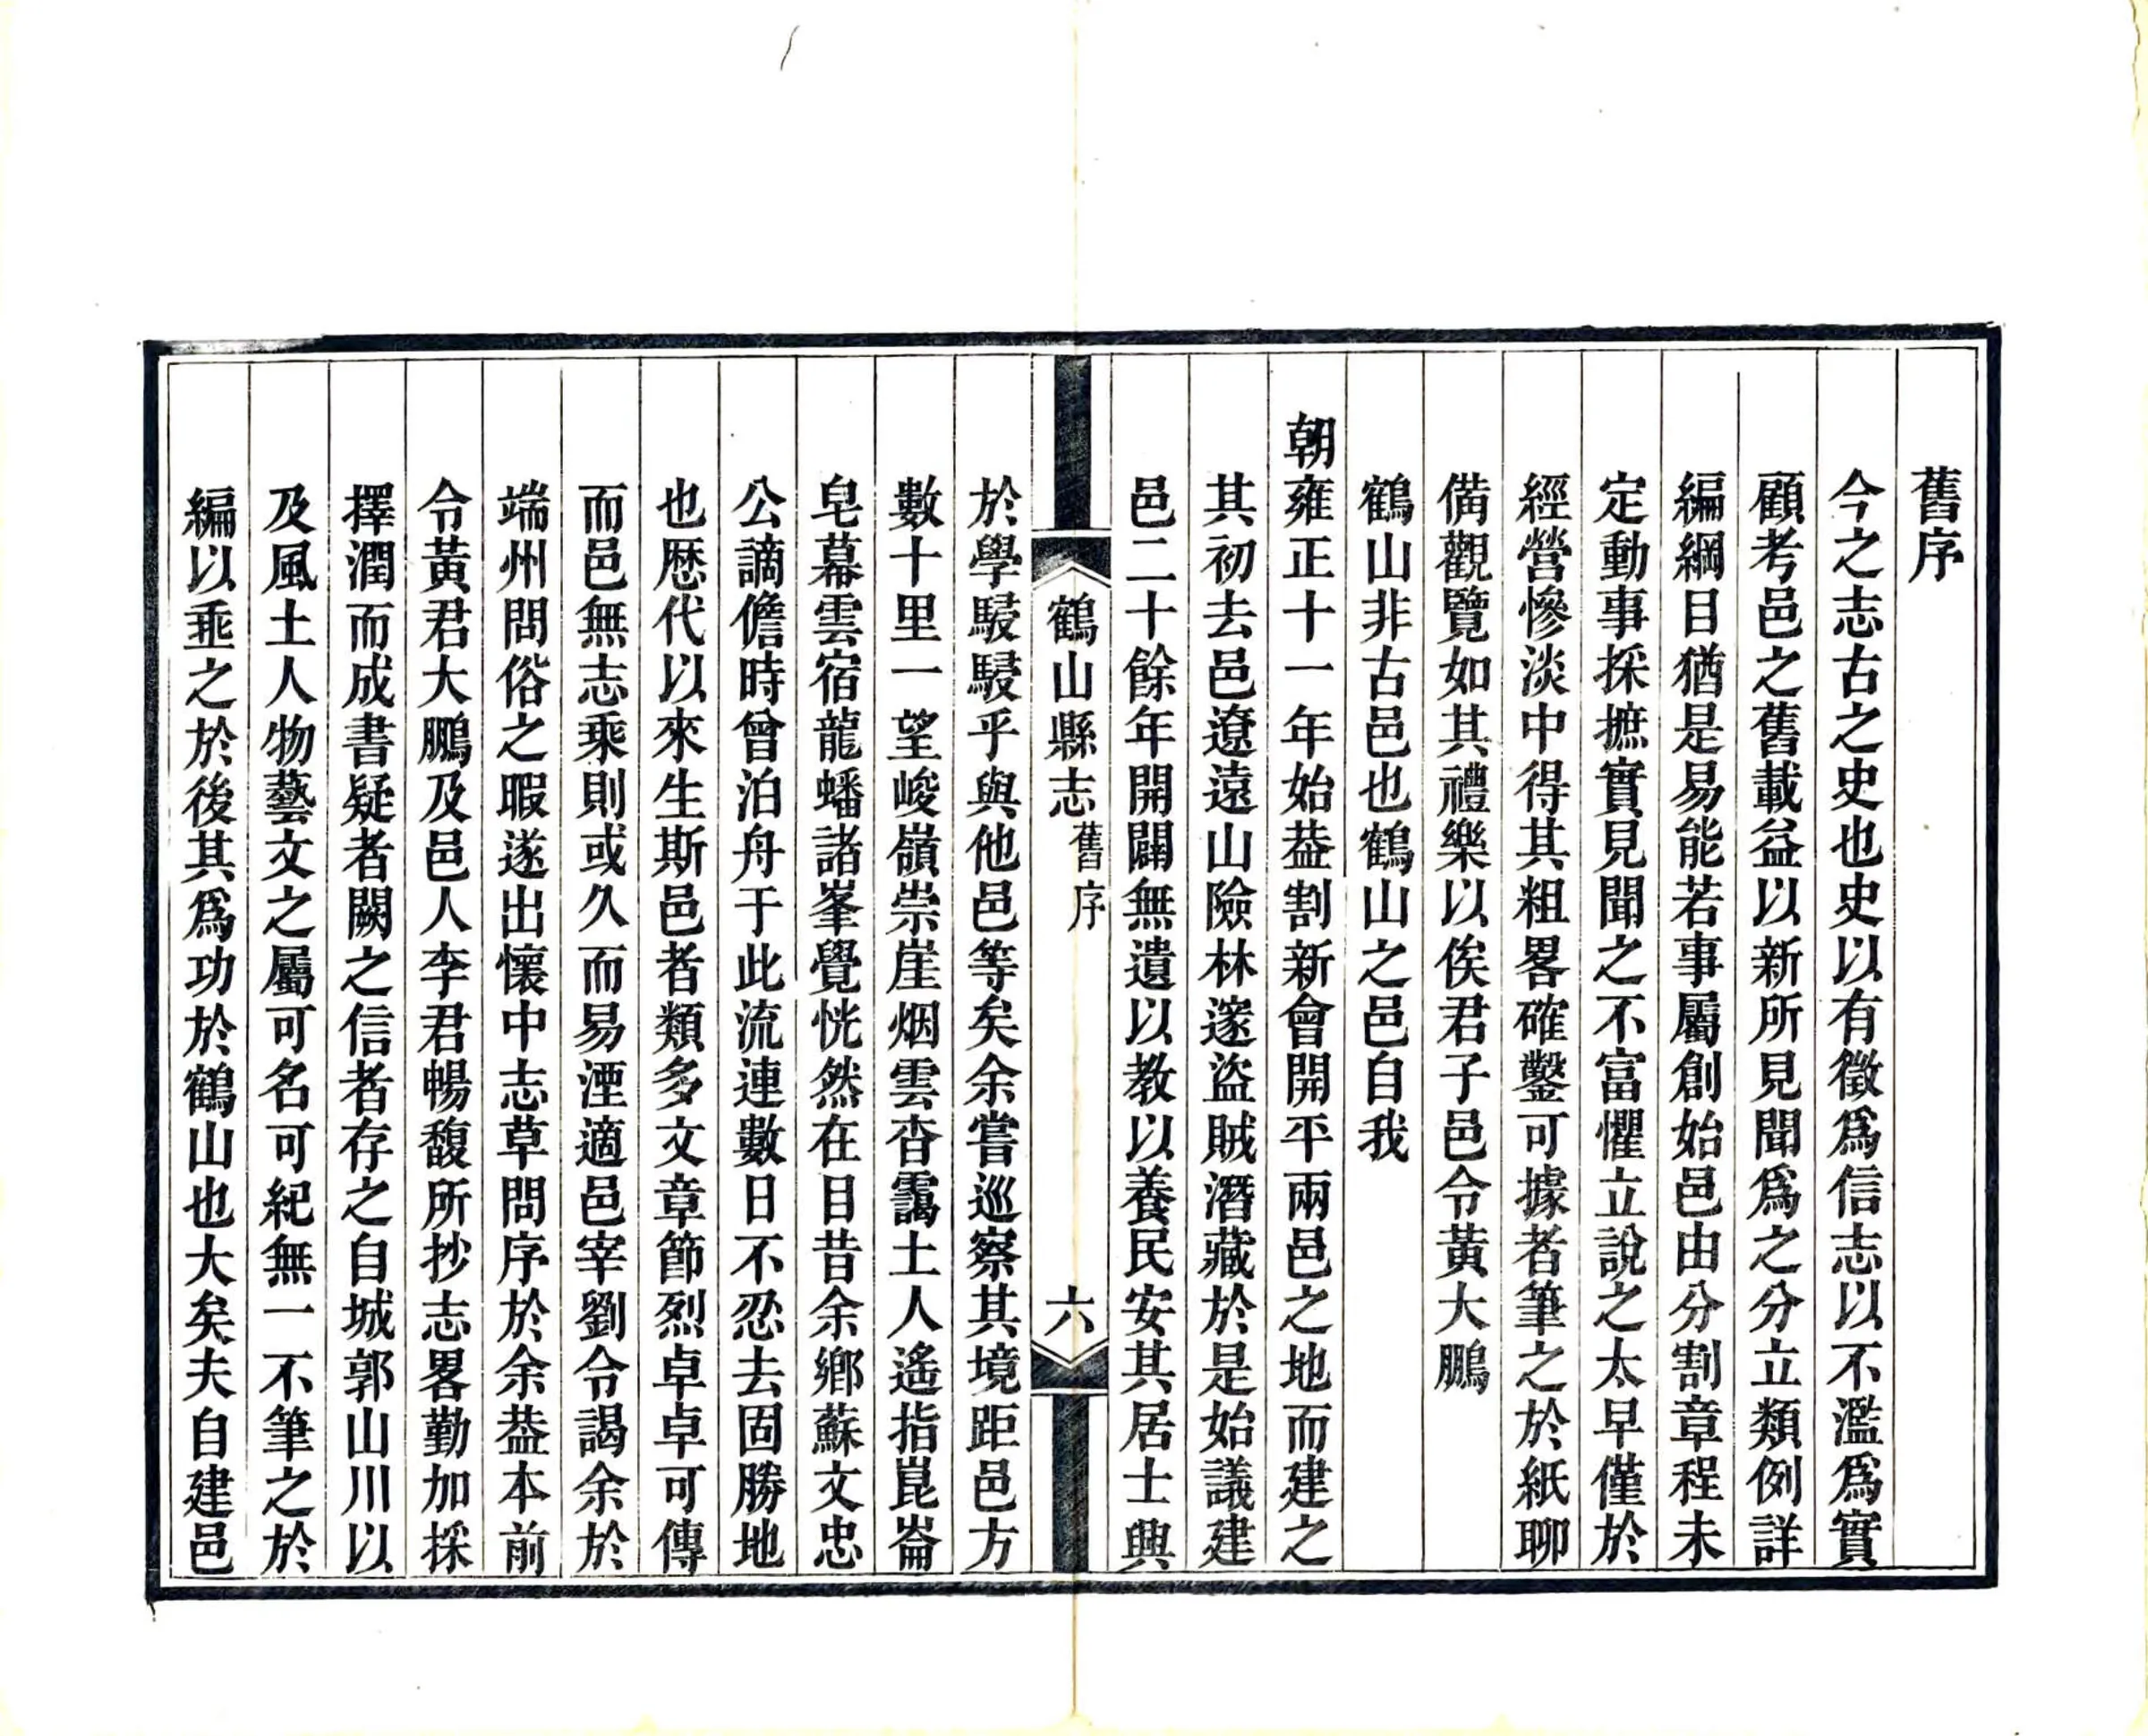 舊序
今之志古之史也史以有徵爲信志以不濫爲實
顧考邑之舊載益以新所見聞爲之分立類例詳
編綱目猶是易能若事屬創始邑由分割章程未
定動事採摭實見聞之不富懼立說之太早僅於
經營慘淡中得其粗畧確鑿可據者筆之於紙聊
備觀覽如其禮樂以俟君子邑令黃大鵬
鶴山非古邑也鶴山之邑自我
朝雍正十一年始葢割新會開平兩邑之地而建之
其初去邑遼遠山險林邃盜賊潛藏於是始議建
邑二十餘年開闢無遺以教以養民安其居士興
鶴山縣志 舊序 六
於學駸駸乎與他邑等矣余嘗巡察其境距邑方
數十里一望峻嶺崇崖烟雲杳靄土人遙指崑崙
皂幕雲宿龍蟠諸峯覺恍然在目昔余鄉蘇文忠
公謫儋時曾泊舟于此流連數日不忍去固勝地
也歷代以來生斯邑者類多文章節烈卓卓可傳
而邑無志乘則或久而易湮適邑宰劉令謁余於
端州問俗之暇遂出懷中志草問序於余葢本前
令黃君大鵬及邑人李君暢馥所抄志畧勤加採
擇潤而成書疑者闕之信者存之自城郭山川以
及風土人物藝文之屬可名可紀無一不筆之於
編以垂之於後其爲功於鶴山也大矣夫自建邑